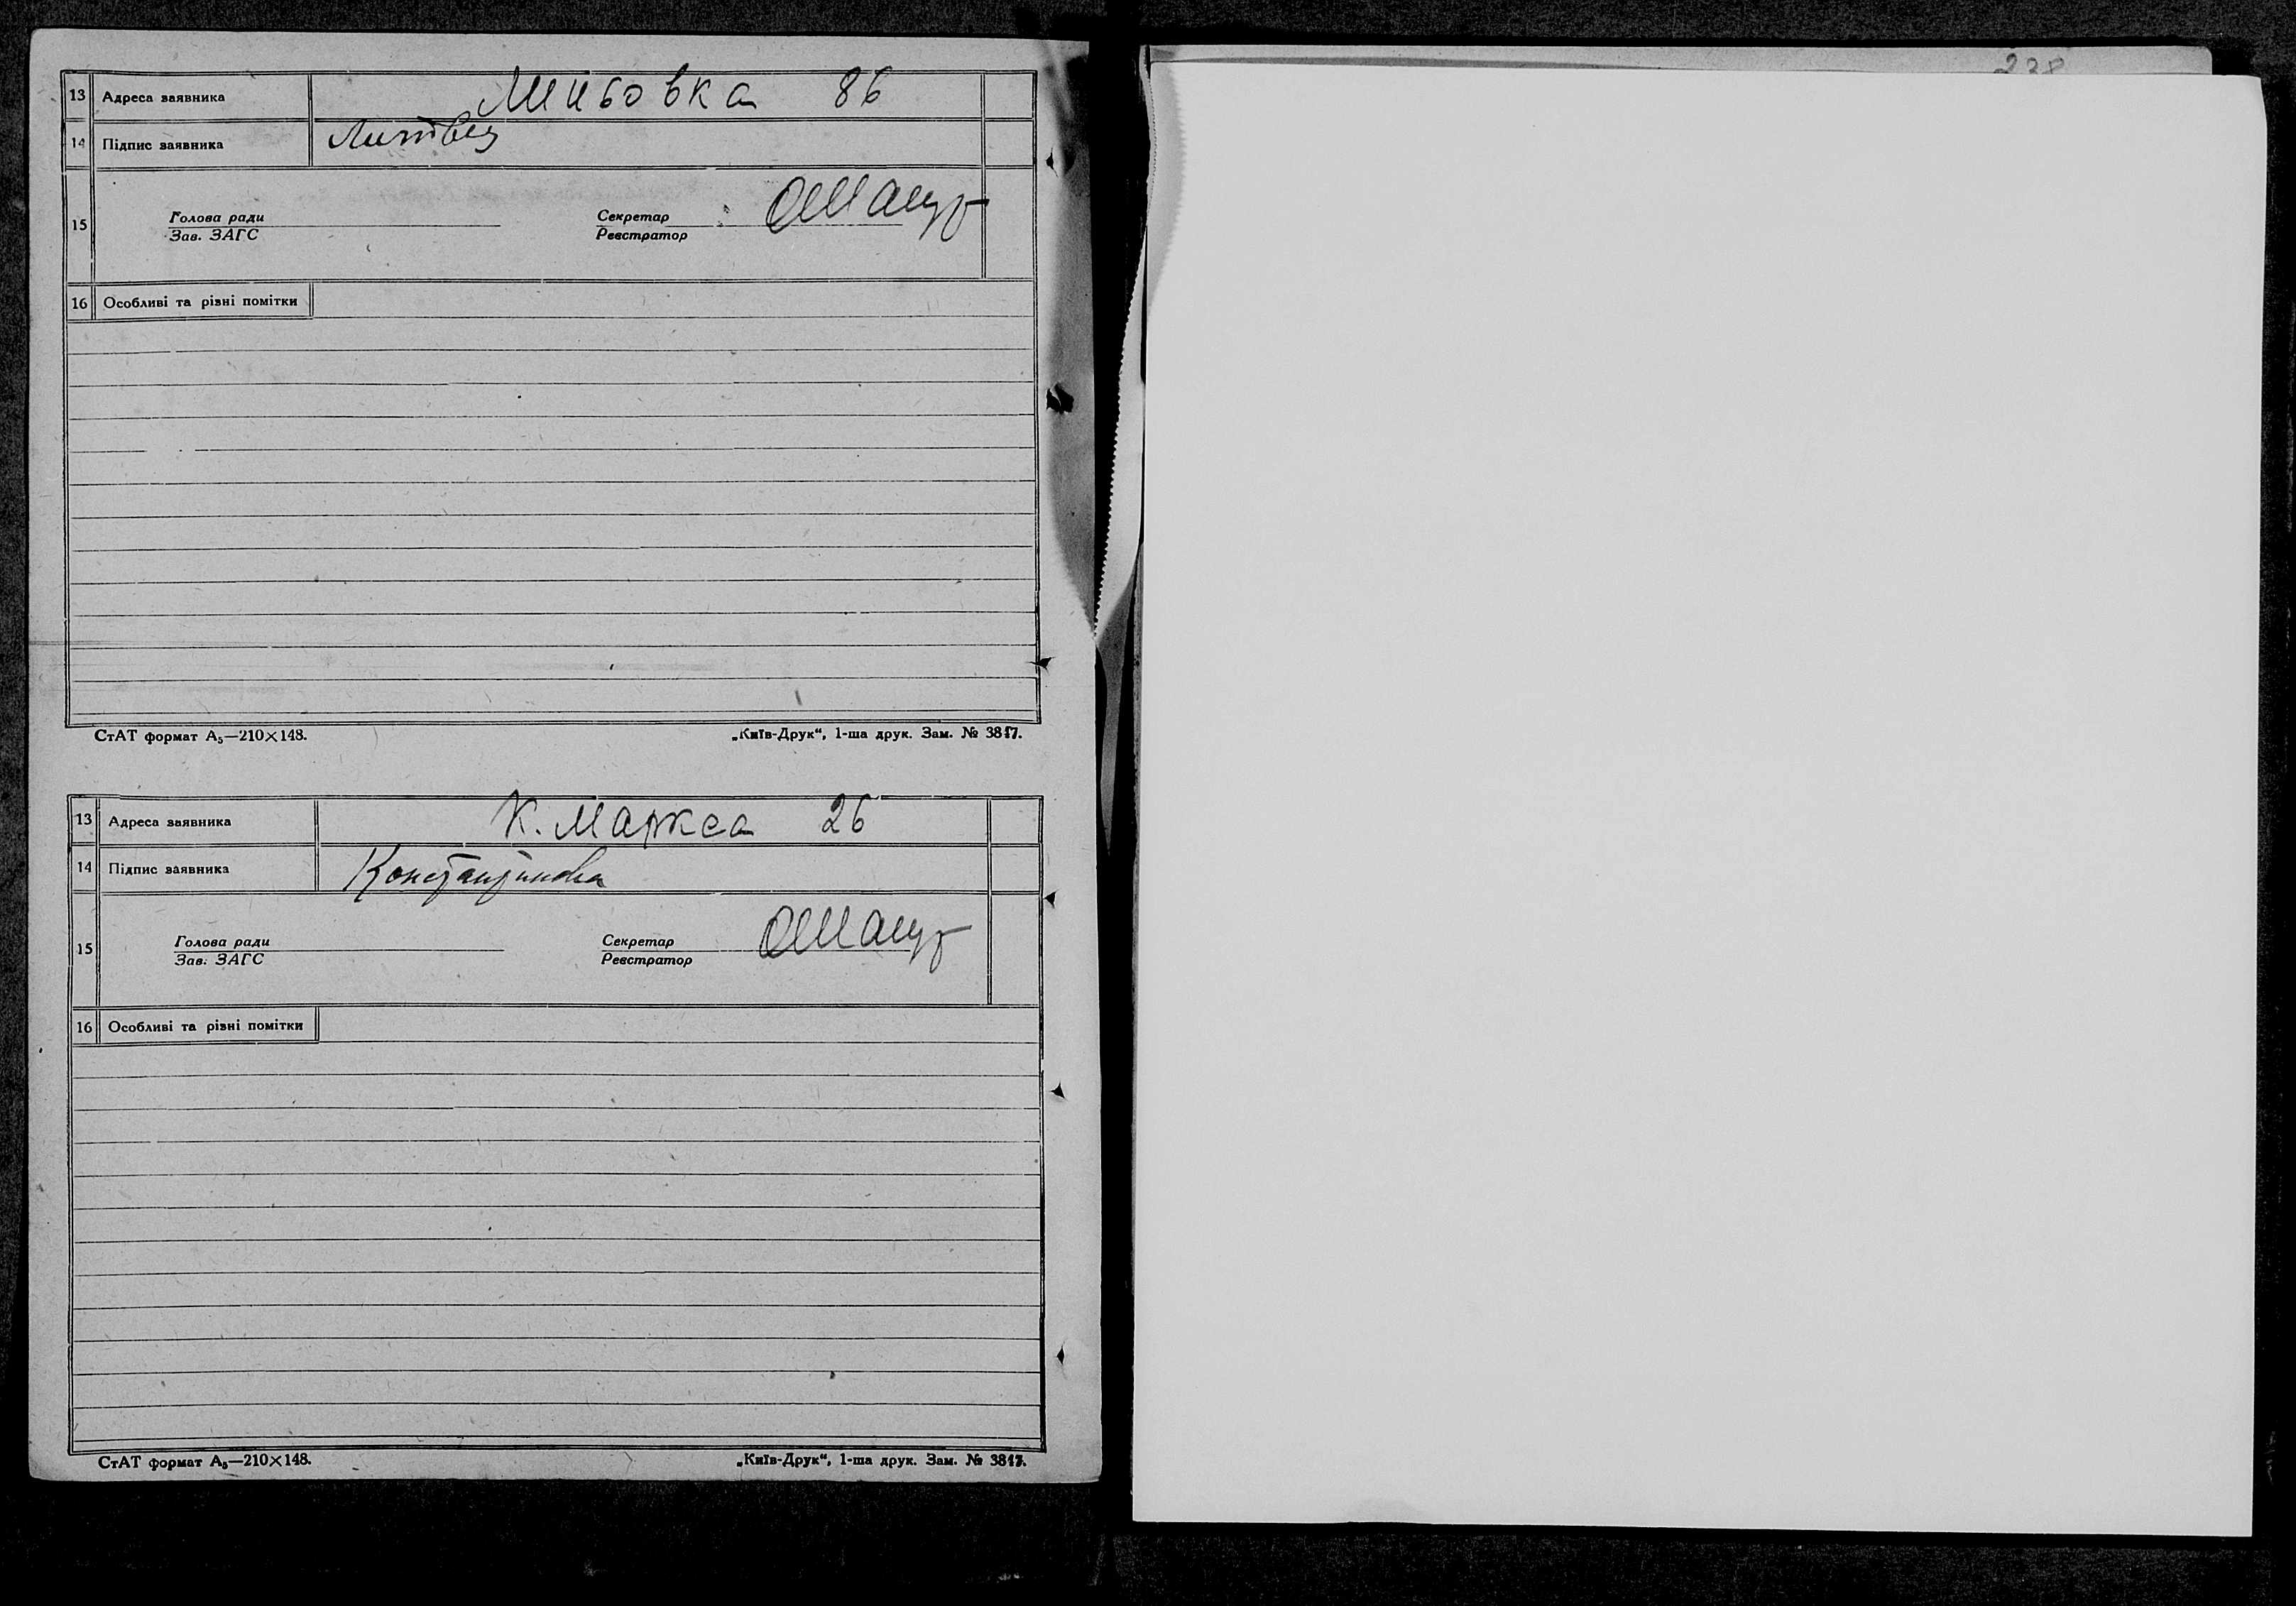 238
13 Адреса заявника 86
14 Підпис заявника
15 Голова ради Секретар
Зав. ЗАГС Реєстратор
16 Особливі та різні помітки
СтАТ формат А₅—210×148. „Київ-Друк“, 1-ша друк. Зам. № 3817.
13 Адреса заявника К. Маркса 26
14 Підпис заявника Константинова
15 Голова ради Секретар
Зав. ЗАГС Реєстратор
16 Особливі та різні помітки
СтАТ формат А₅—210×148. „Київ-Друк“, 1-ша друк. Зам. № 3817.